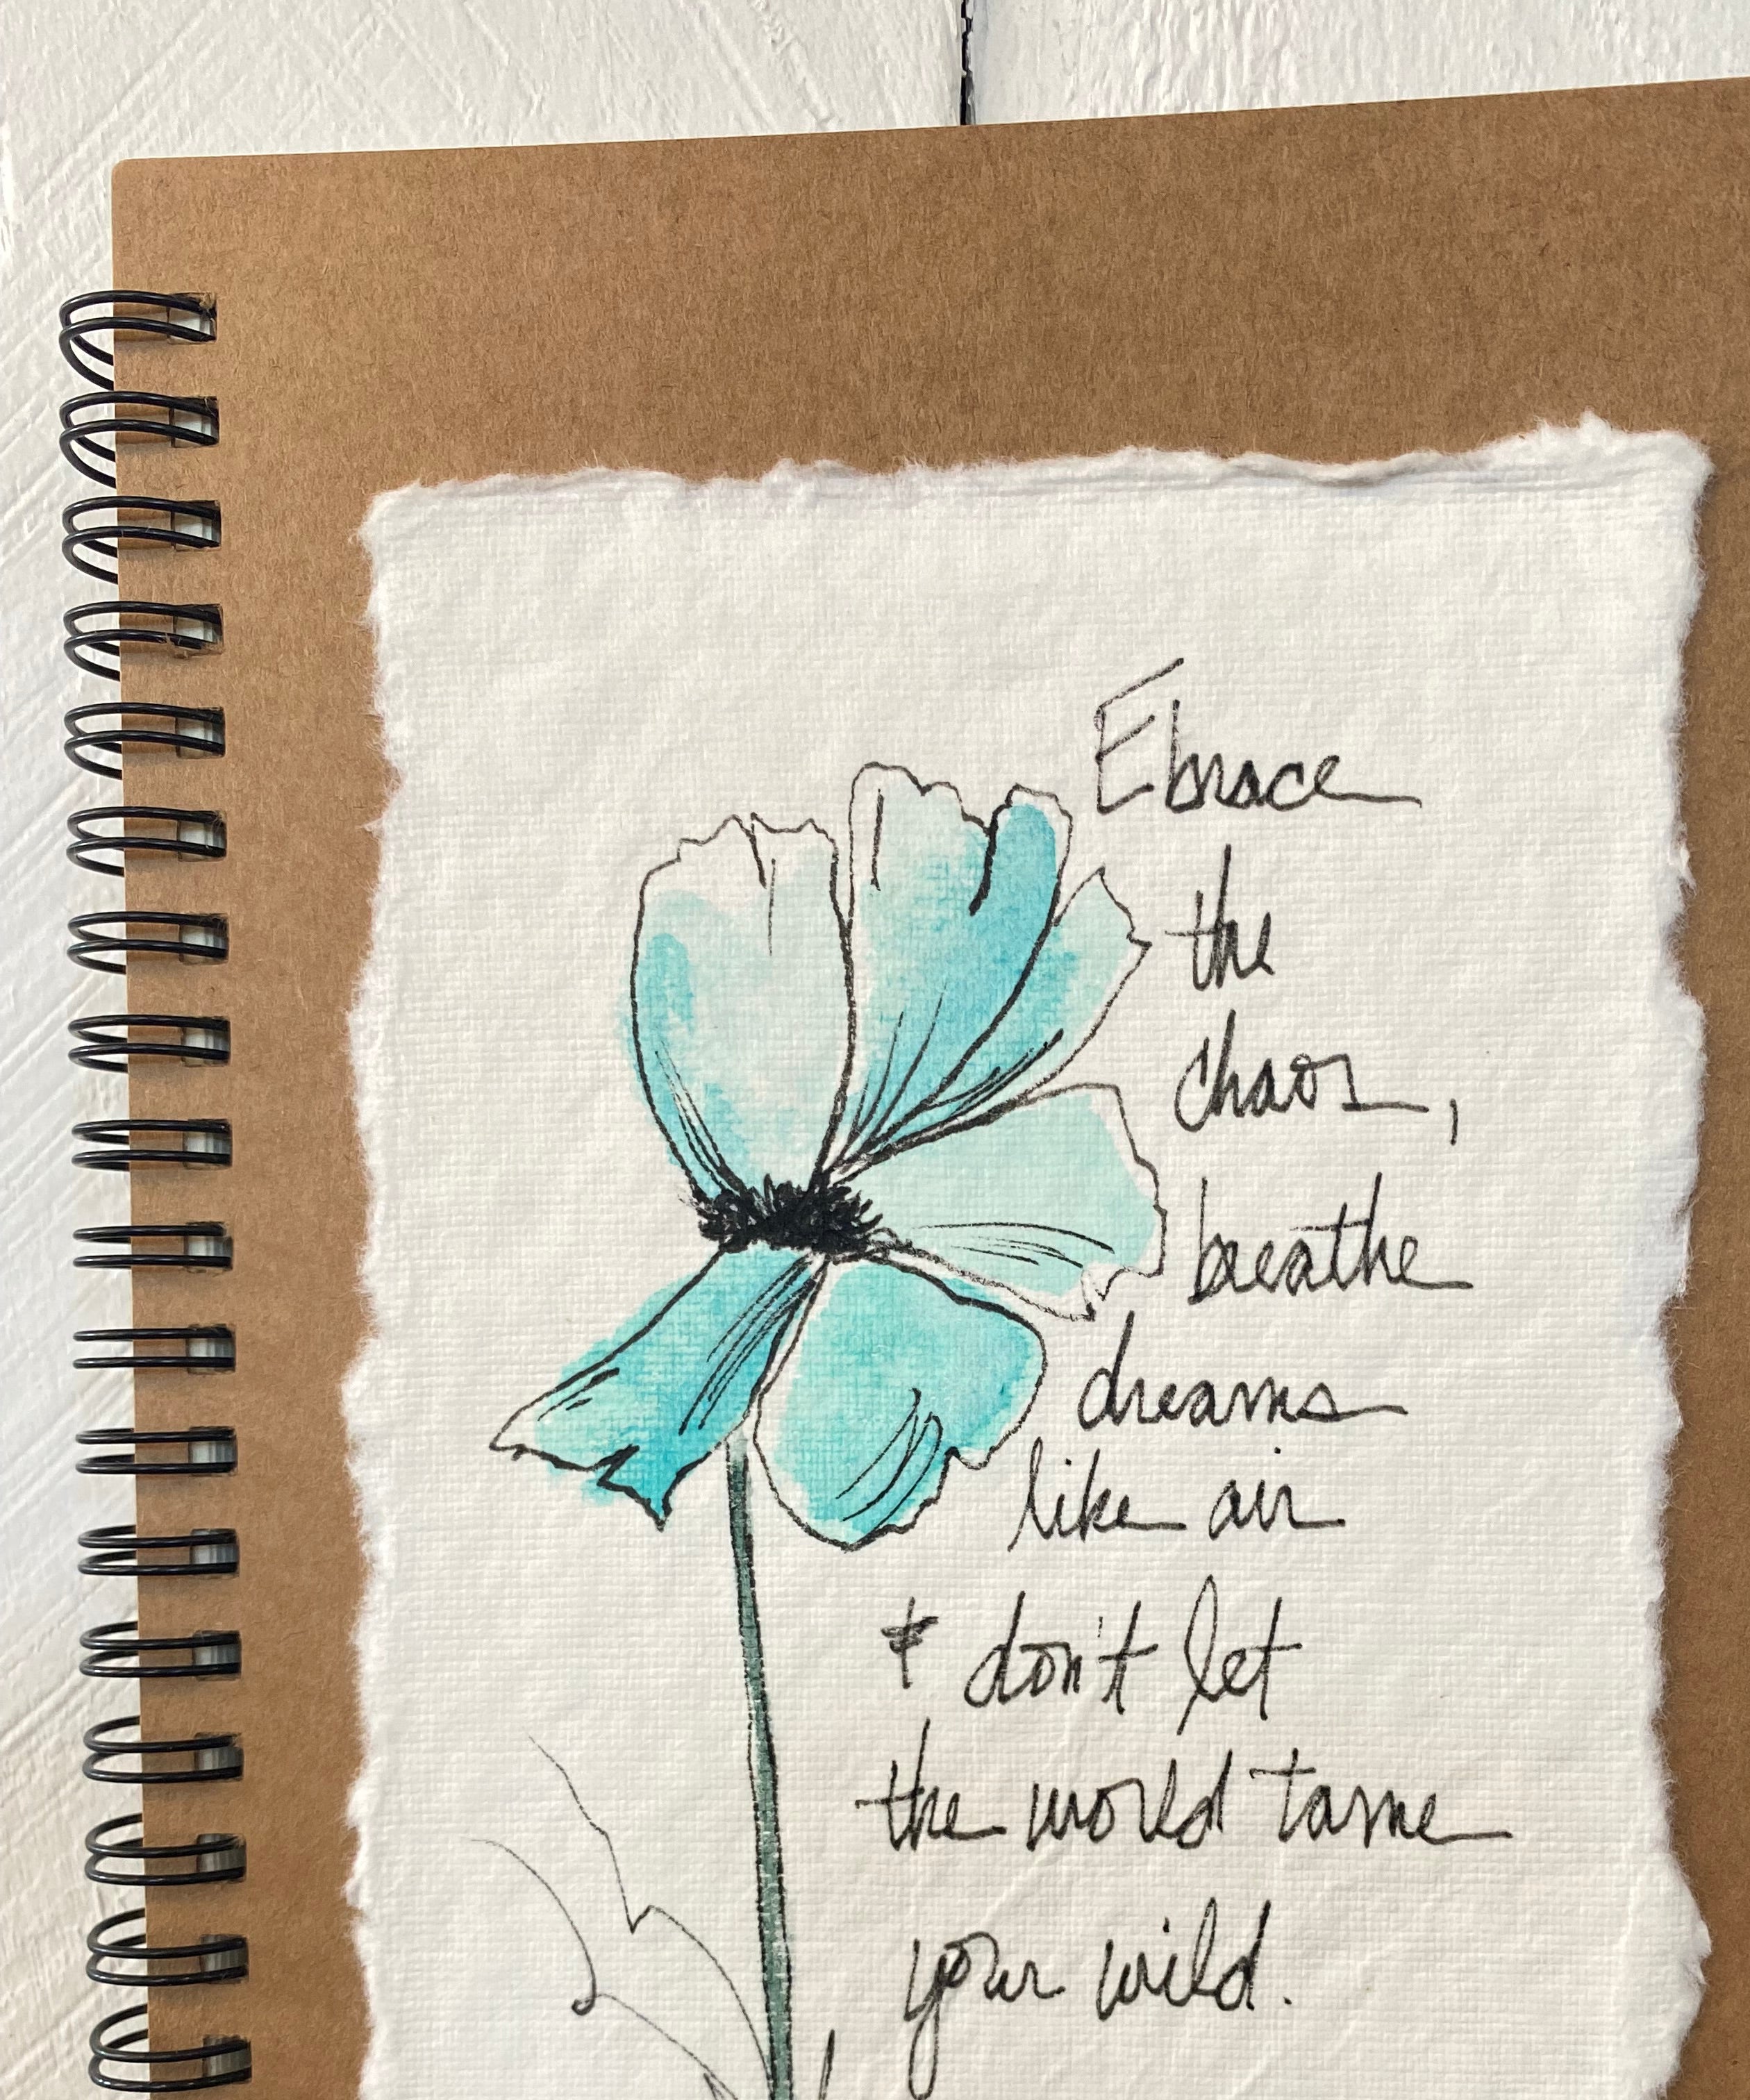 Ebrace
the
chaos,
breathe
dreams
like air
+ don't let
the world tame
your wild.